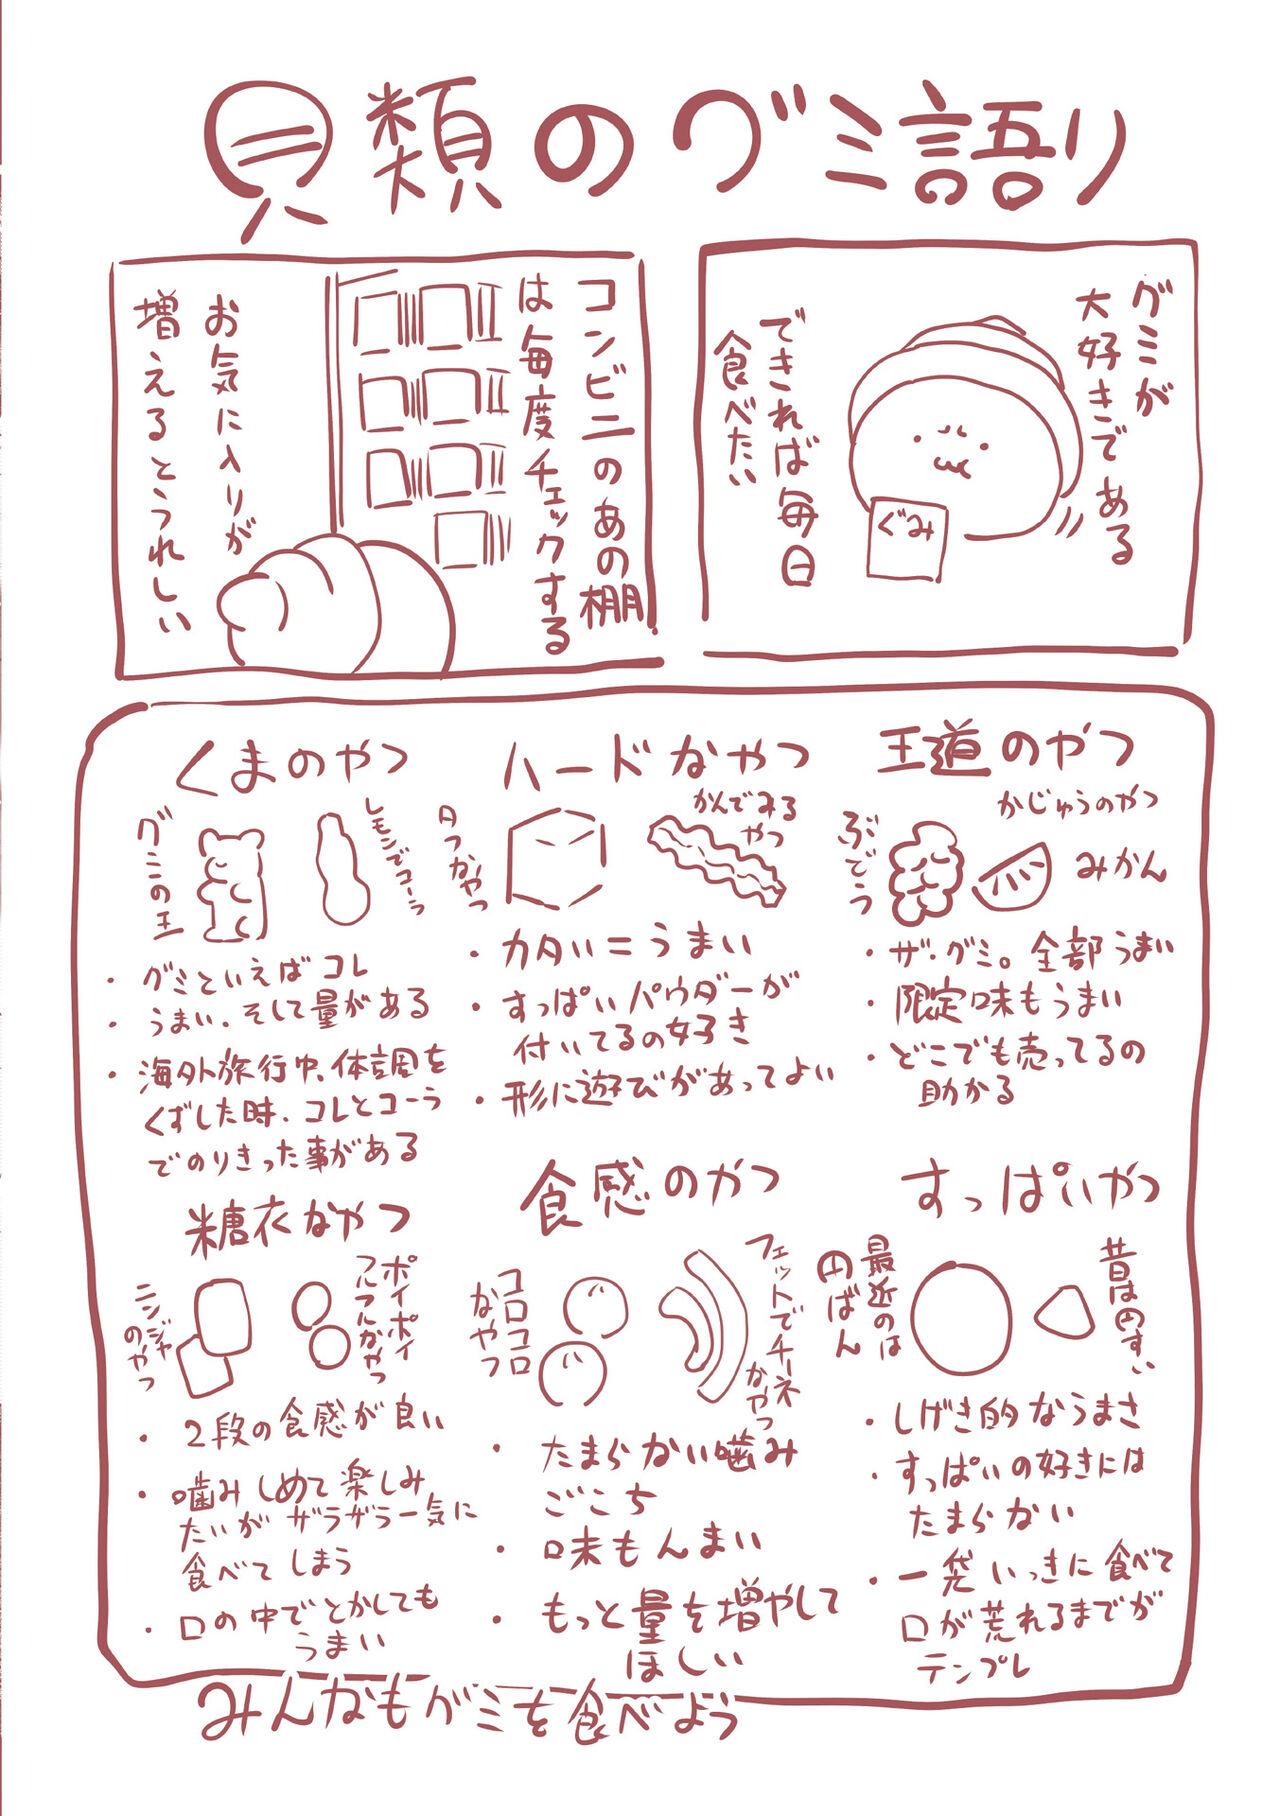 貝類のグミ語り
グミが
大好きである
できれば毎日
食べたい
ぐみ
コンビニのあの棚
は毎度チェックする
お気に入りが
増えるとうれしい
王道のやつ
かじゅうのやつ
ぶどう
みかん
・ザ・グミ。全部うまい
・限定味もうまい
・どこでも売ってるの
助かる
ハードなやつ
かんでみる
やつ
タフなやつ
・カタい=うまい
・すっぱいパウダーが
付いてるの好き
・形に遊びがあってよい
くまのやつ
グミの王
レモンでコーラ
・グミといえばコレ
・うまい、そして量がある
・海外旅行中、体調を
くずした時、コレとコーラ
でのりきった事がある
すっぱいやつ
昔は
最近のは
円ばん
・しげき的なうまさ
・すっぱいの好きには
たまらない
・一発いっきに食べて
口が荒れるまでが
テンプレ
食感のやつ
フェットでチーネ
なやつ
コロコロ
なやつ
・たまらない噛み
ごこち
・味もんまい
・もっと量を増やして
ほしい
糖衣なやつ
ポイポイ
フルフルなやつ
ニンジャ
のやつ
・2段の食感が良い
・噛みしめて楽しみ
たいがザラザラ一気に
食べてしまう
・口の中でとかしても
うまい
みんなもグミを食べよう